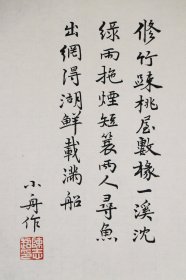 修竹疎桃屋數椽一溪沈
綠雨拖煙短蓑兩人尋魚
出網得湖鮮載滿船
小舟作